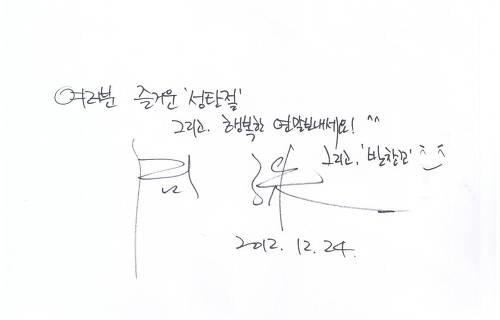 여러분 즐거운 '성탄절'
그리고, 행복한 연말보내세요! ^^
그리고, '반창꼬'
2012. 12. 24.